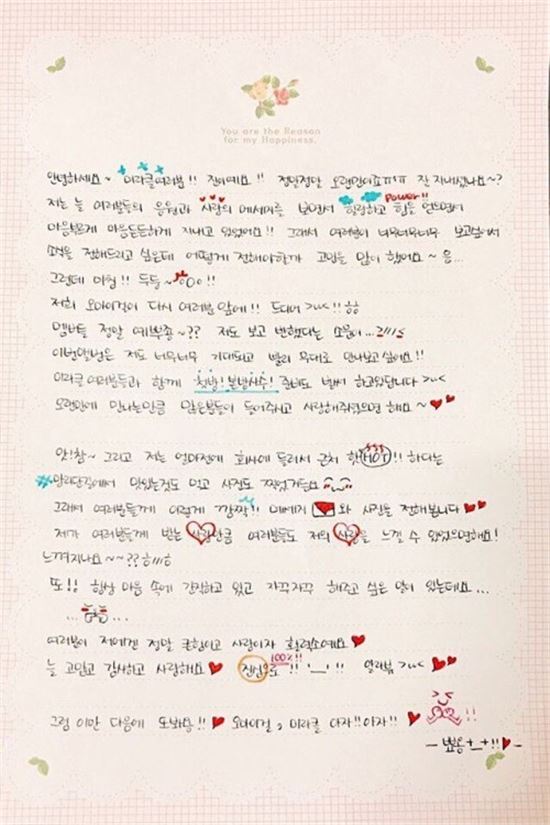 You are the Reason
for my Happiness.
안녕하세요~ 미라클여러분!! 진이예요!! 정말정말 오랜만이죠ㅠㅠ 잘 지내셨나요~?
저는 늘 여러분들의 응원과 사랑의 메세지를 보면서 힐링하고 힘을 얻으면서
Power!!
마음만은 마음든든하게 지내고 있었어요!! 그래서 여러분이 너무너무너무 보고싶어서
소식을 전해드리고 싶은데 어떻게 전해야할까 고민을 많이 했어요~ 음...
그런데 마침!! 두둥~ !!
저희 오마이걸이 다시 여러분 앞에!! 드디어 >_<!! ㅎㅎ
멤버들 정말 예쁘죵~?? 저도 보고 반했다는 소문이...
이번앨범은 저도 너무너무 기대되고 빨리 무대로 만나보고 싶어요!!
미라클 여러분들과 함께 첫방! 본방사수! 준비도 벌써 하고있답니다 >_<
오랜만에 만나는만큼 많은분들이 들어주시고 사랑해주셨으면 해요~
앗!참~ 그리고 저는 얼마전에 회사에 들러서 근처 핫(HOT)!! 하다는
#망리단길에서 맛있는것도 먹고 사진도 찍었거든요
그래서 여러분들께 이렇게 깜짝!! 메세지 와 사진을 전해봅니다
제가 여러분들께 받는 사랑만큼 여러분들도 저의 사랑을 느낄 수 있었으면해요!
느껴지나요~~??
또!! 항상 마음 속에 간직하고 있고 자꾸자꾸 해주고 싶은 말이 있는데요...
...
여러분이 저에겐 정말 큰힘이고 사랑이자 활력소예요
늘 고맙고 감사하고 사랑해요 진심으로 100%!! !! '_' !! 알라뷰 >_<
그럼 이만 다음에 또봐용!! 오마이걸, 미라클 아자!!아자!! !!